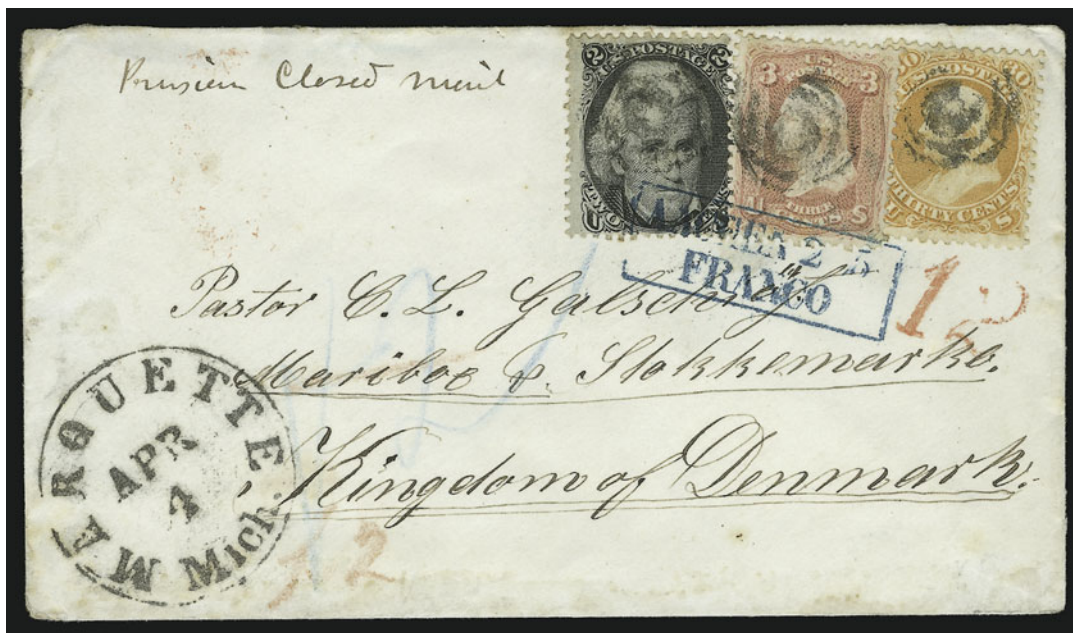 Prussien Closed mail
2 POSTAGE 2
U TWO CENTS
3 U.S. POSTAGE 3
U THREE CENTS S
30 U.S. POSTAGE 30
U THIRTY CENTS S
AACHEN 2 5
FRANCO
12
Pastor C. L. Galschiøt.
Mariboe & Stokkemarke.
Kingdom of Denmark.
MARQUETTE
APR
4
Mich.
12